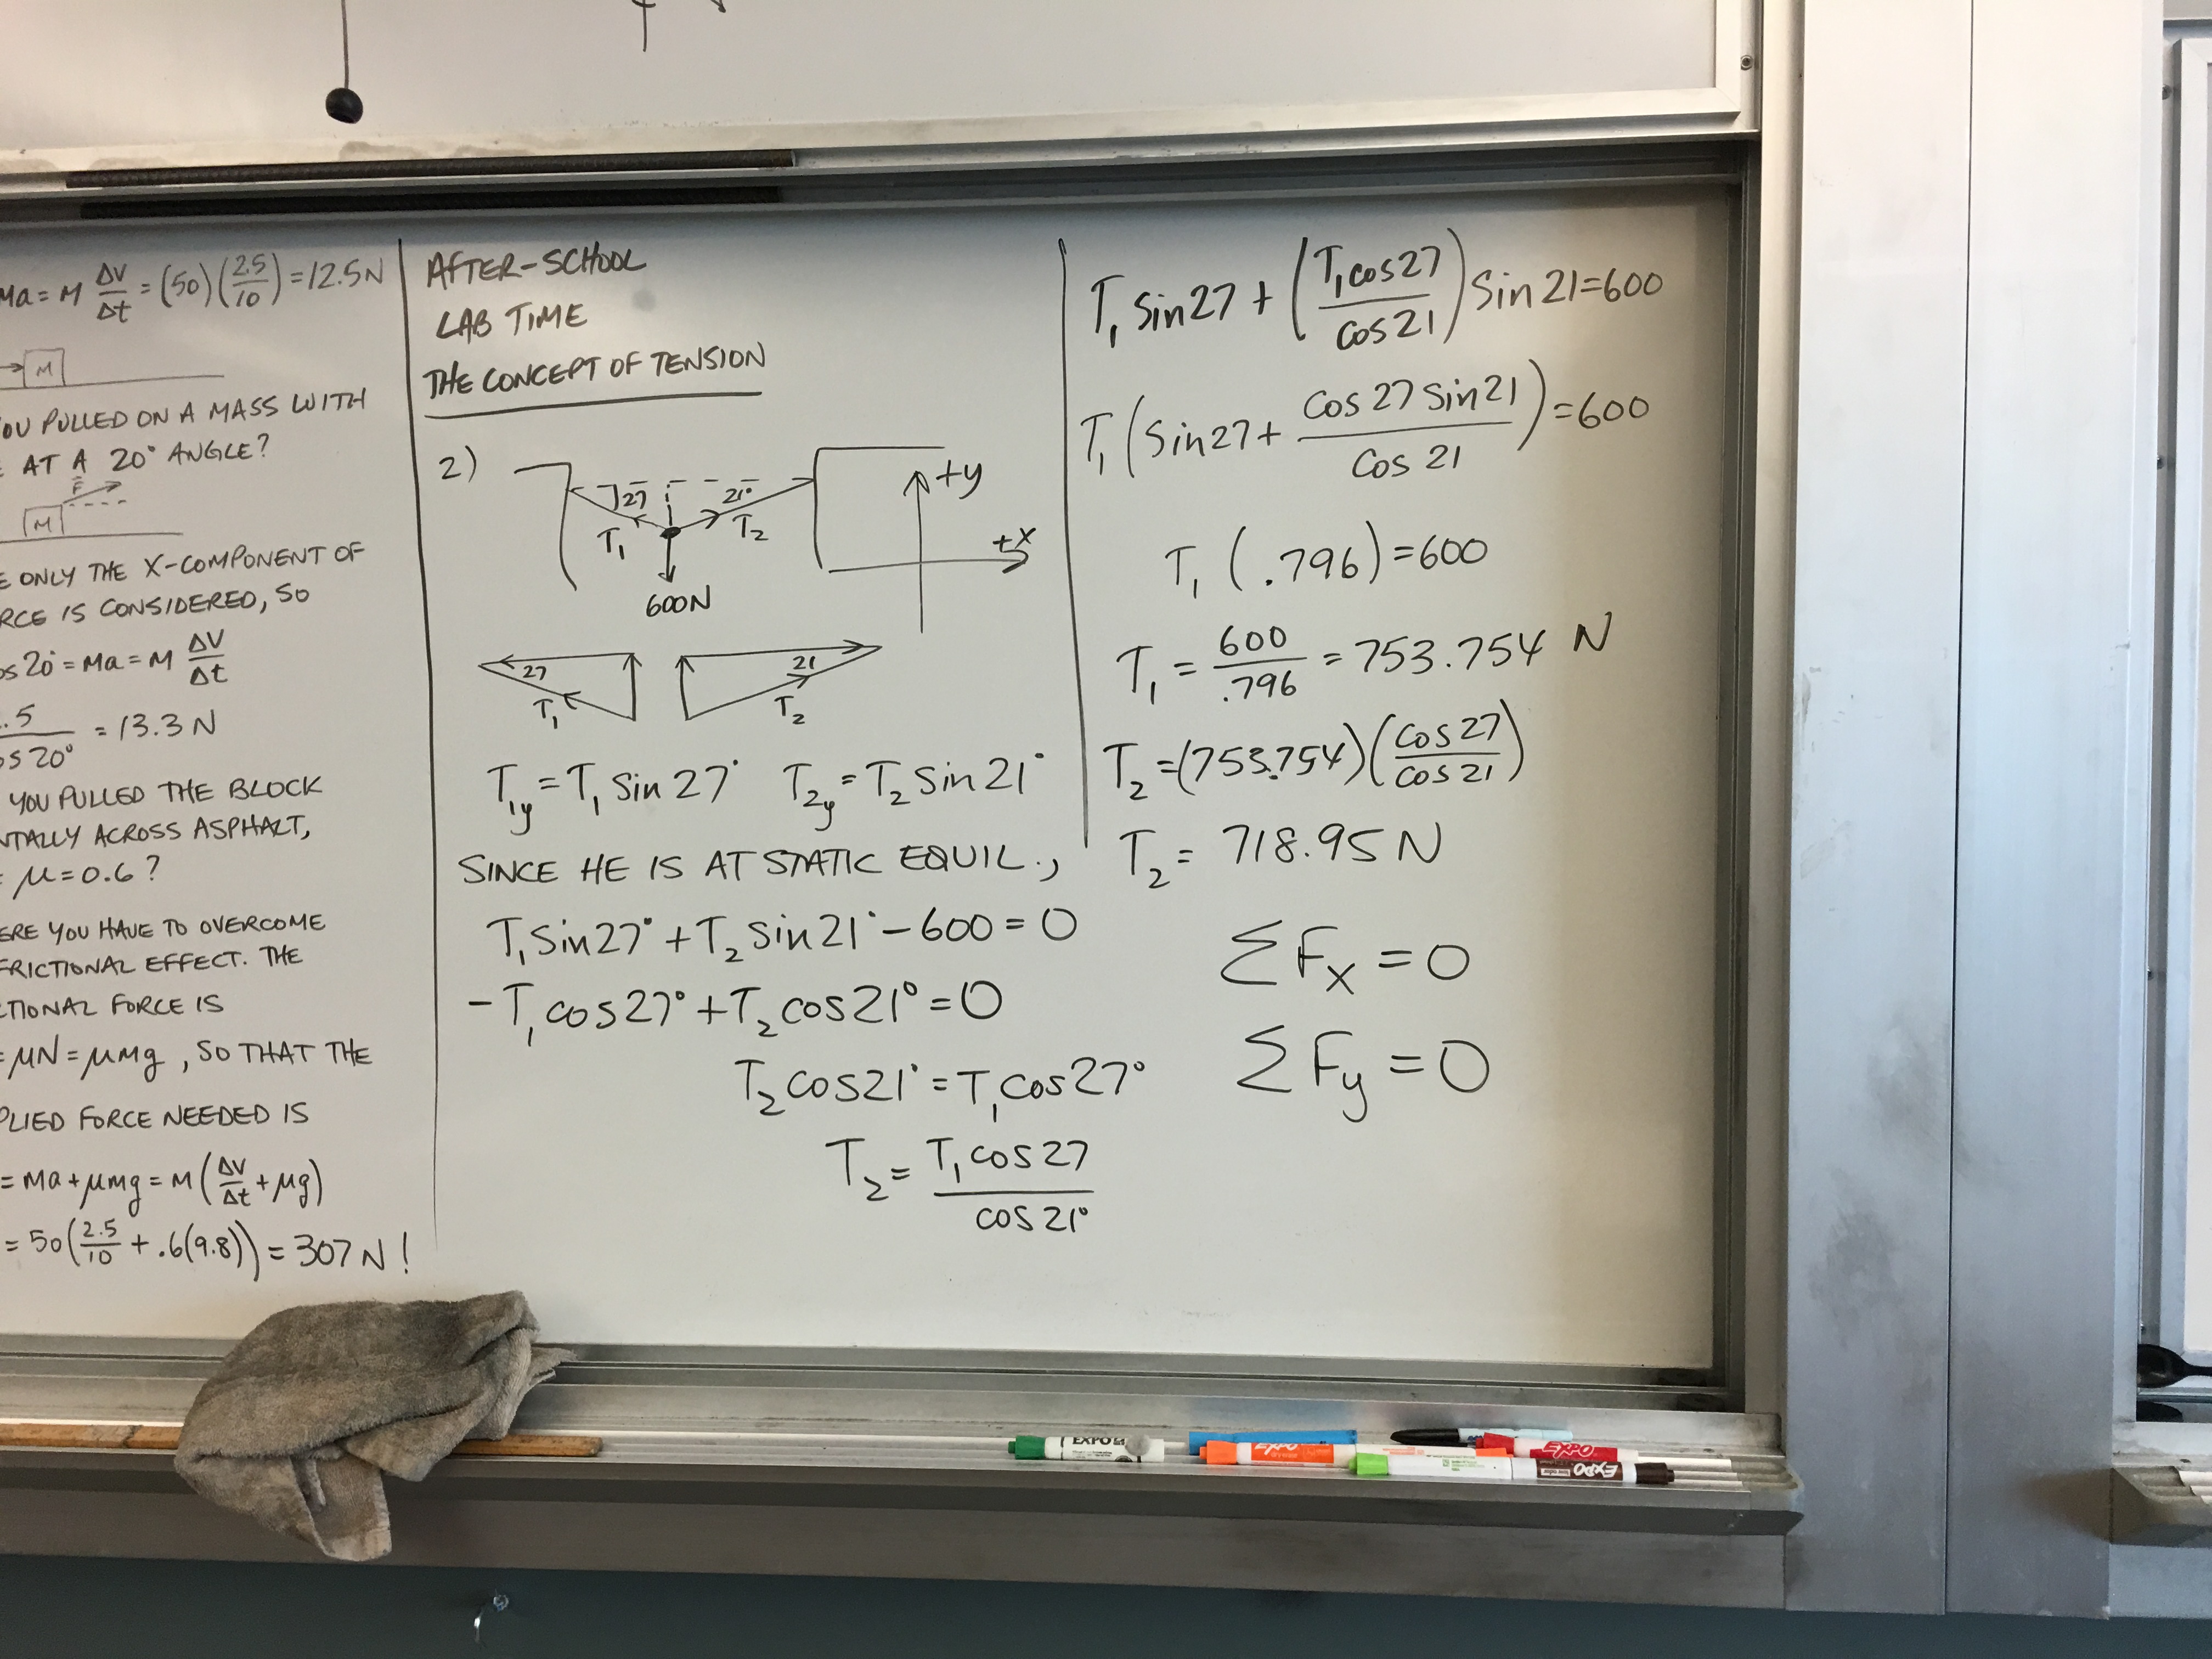 Ma = M ΔV/Δt = (50)(2.5/10) = 12.5N
M
OU PULLED ON A MASS WITH
AT A 20° ANGLE?
F
M
ONLY THE X-COMPONENT OF
RCE IS CONSIDERED, SO
os 20° = Ma = M ΔV/Δt
.5/os 20° = 13.3 N
YOU PULLED THE BLOCK
NTALLY ACROSS ASPHALT,
μ = 0.6?
ERE YOU HAVE TO OVERCOME
FRICTIONAL EFFECT. THE
CTIONAL FORCE IS
= μN = μmg, SO THAT THE
PLIED FORCE NEEDED IS
= Ma + μmg = M(ΔV/Δt + μg)
= 50(2.5/10 + .6(9.8)) = 307 N!
AFTER-SCHOOL
LAB TIME
THE CONCEPT OF TENSION
2)
27 21° +y
T₁ T₂ +x
600N
27 21
T₁ T₂
T₁y = T₁ Sin 27° T₂y = T₂ Sin 21°
SINCE HE IS AT STATIC EQUIL.,
T₁ Sin 27° + T₂ Sin 21° - 600 = 0
-T₁ cos 27° + T₂ cos 21° = 0
T₂ cos 21° = T₁ cos 27°
T₂ = T₁ cos 27/cos 21°
T₁ Sin 27 + (T₁ cos 27/cos 21) Sin 21 = 600
T₁ (Sin 27 + Cos 27 Sin 21/Cos 21) = 600
T₁ (.796) = 600
T₁ = 600/.796 = 753.754 N
T₂ = (753.754)(cos 27/cos 21)
T₂ = 718.95 N
ΣFx = 0
ΣFy = 0
EXPO
EXPO
EXPO
EXPO